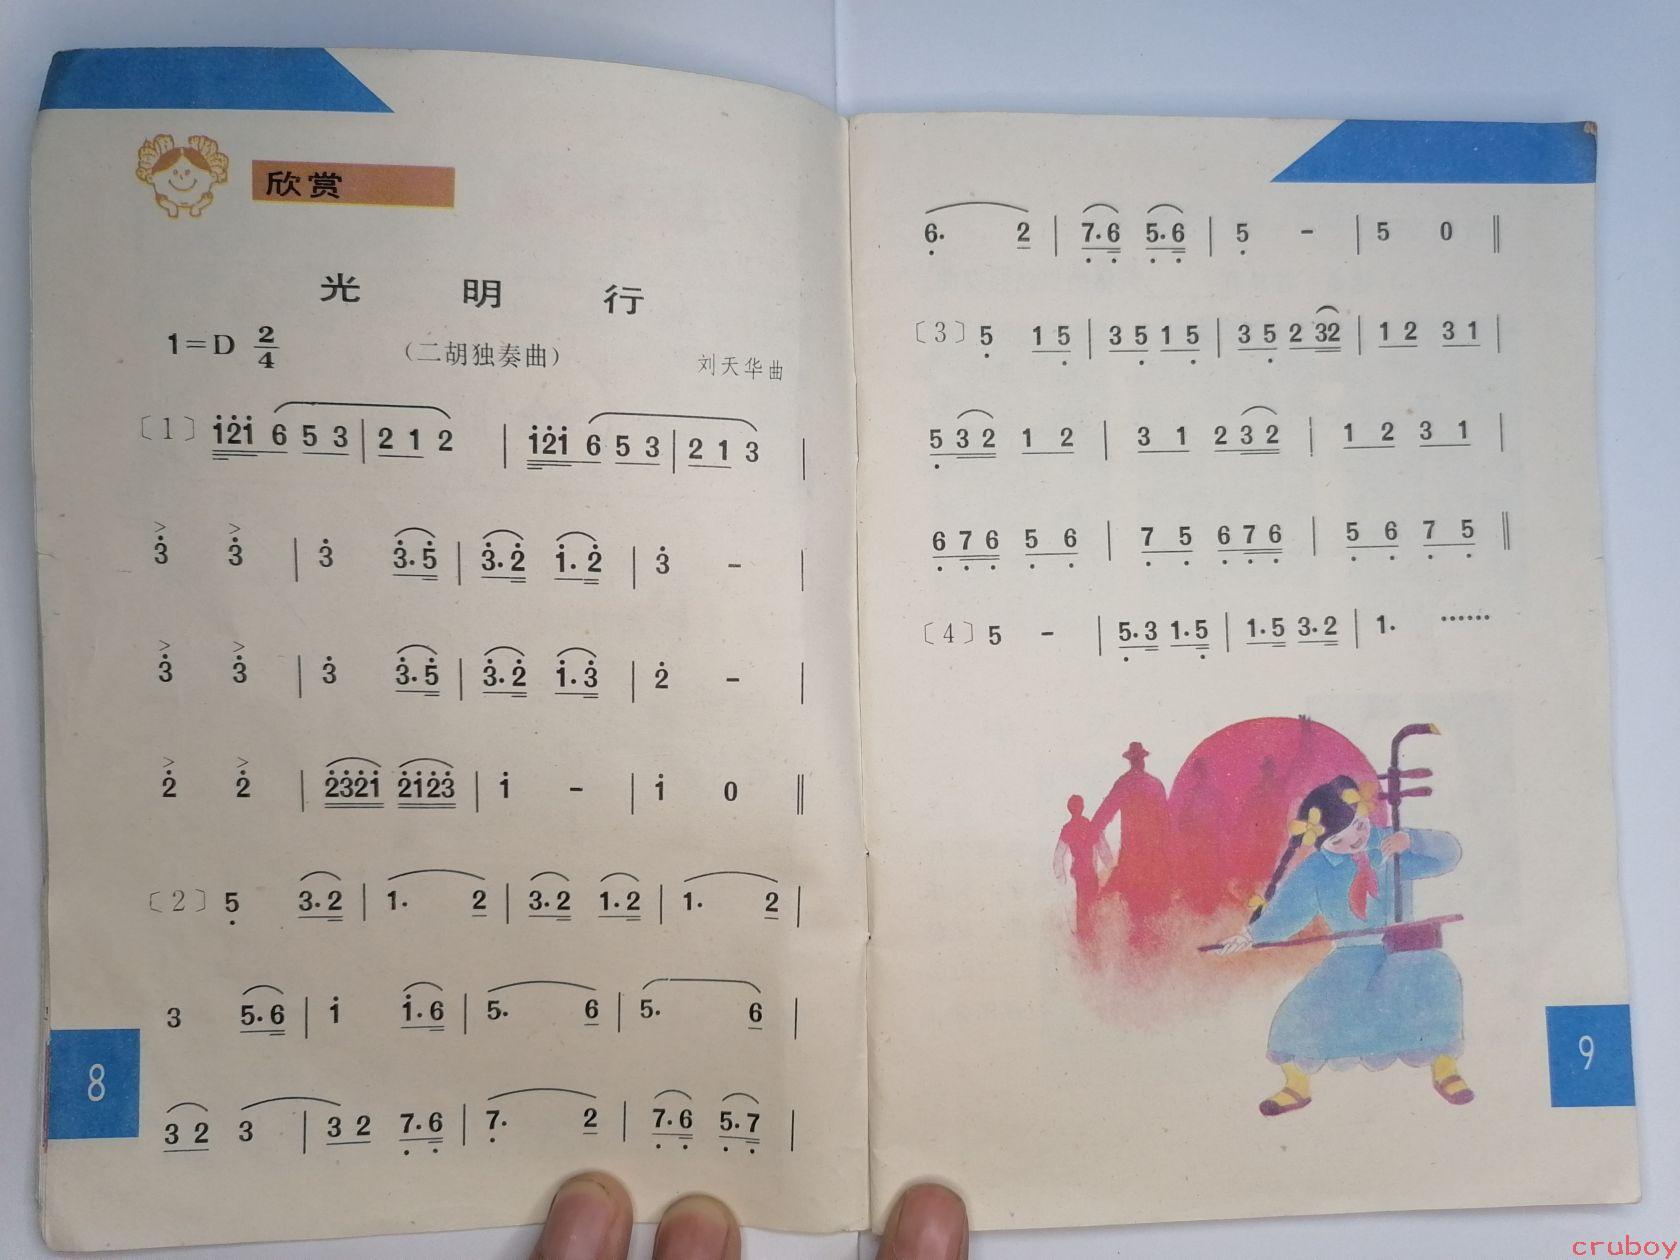 欣赏
光明行
1=D 2/4
（二胡独奏曲）
刘天华曲
〔1〕 i̇2̇i̇ 6 5 3 | 2 1 2 | i̇2̇i̇ 6 5 3 | 2 1 3 |
3̇ 3̇ | 3̇ 3̇·5̇ | 3̇·2̇ i̇·2̇ | 3̇ - |
3̇ 3̇ | 3̇ 3̇·5̇ | 3̇·2̇ i̇·3̇ | 2̇ - |
2̇ 2̇ | 2̇3̇2̇i̇ 2̇i̇2̇3̇ | i̇ - | i̇ 0 ‖
〔2〕 5̣ 3·2 | 1· 2 | 3·2 1·2 | 1· 2 |
3 5·6 | i̇ i̇·6 | 5· 6 | 5· 6 |
3 2 3 | 3 2 7̣·6̣ | 7̣· 2 | 7̣·6̣ 5̣·7̣ |
8
6̣· 2 | 7̣·6̣ 5̣·6̣ | 5̣ - | 5 0 ‖
〔3〕 5̣ 1 5̣ | 3 5̣ 1 5̣ | 3 5̣ 2 32 | 1 2 3 1 |
5̣ 3 2 1 2 | 3 1 2 3 2 | 1 2 3 1 |
6̣ 7̣ 6̣ 5̣ 6̣ | 7̣ 5̣ 6̣ 7̣ 6̣ | 5̣ 6̣ 7̣ 5̣ ‖
〔4〕 5 - | 5̣·3 1·5̣ | 1·5 3·2 | 1· ······
9
cruboy